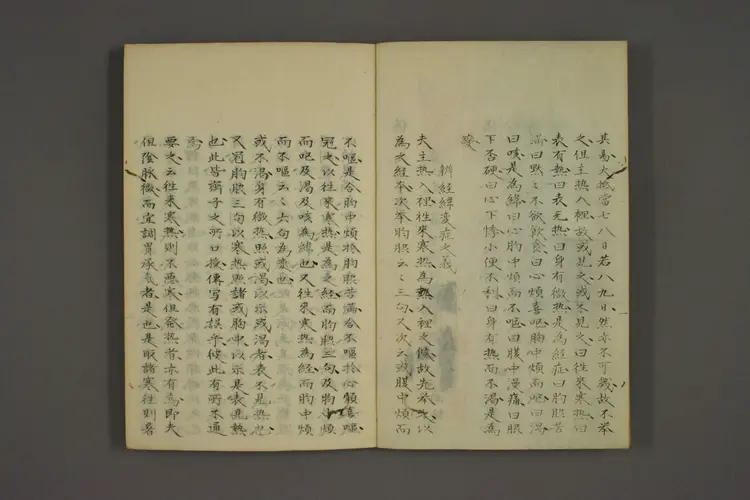 其易大抵當七八日若八九日然亦不可幾故不舉
之但主熱入裡故或見之或不見之曰往來寒熱曰
表有熱曰表无熱曰身有微熱是為經症曰胸脇苦
滿曰默〻不欲飲食曰心煩喜嘔胸中煩而嘔曰渴
曰咳是為緯曰心胸中煩而不嘔曰腹中痛曰脇
下否硬曰心下悸小便不利曰身有熱而不渴是為
變
辨經緯変症之義
夫主熱入裡往來寒熱為熱入裡之候故先舉以
為之經本次舉胸脇云〻三句又次云或腹中煩而
不嘔是合胸中煩於胸脇苦滿合不嘔於心煩喜嘔
冠之以往來寒熱是為之經而胸脇三句及胸中煩
而嘔及渴及咳為緯也又往來寒熱為經而胸中煩
而不嘔云〻去句為変也
或不渴身有微熱照或渴以示或渴者表不見熱也
又冠胸脇三句以寒熱照諸或胸中以示是表見熱
也此皆夫子之所口授傳写有誤乎彼此有所不通
焉
要之云往來寒熱則不悪寒但發熱者亦有焉即夫
但陰脉微而宜調胃承氣者是也是取諸寒往則暑